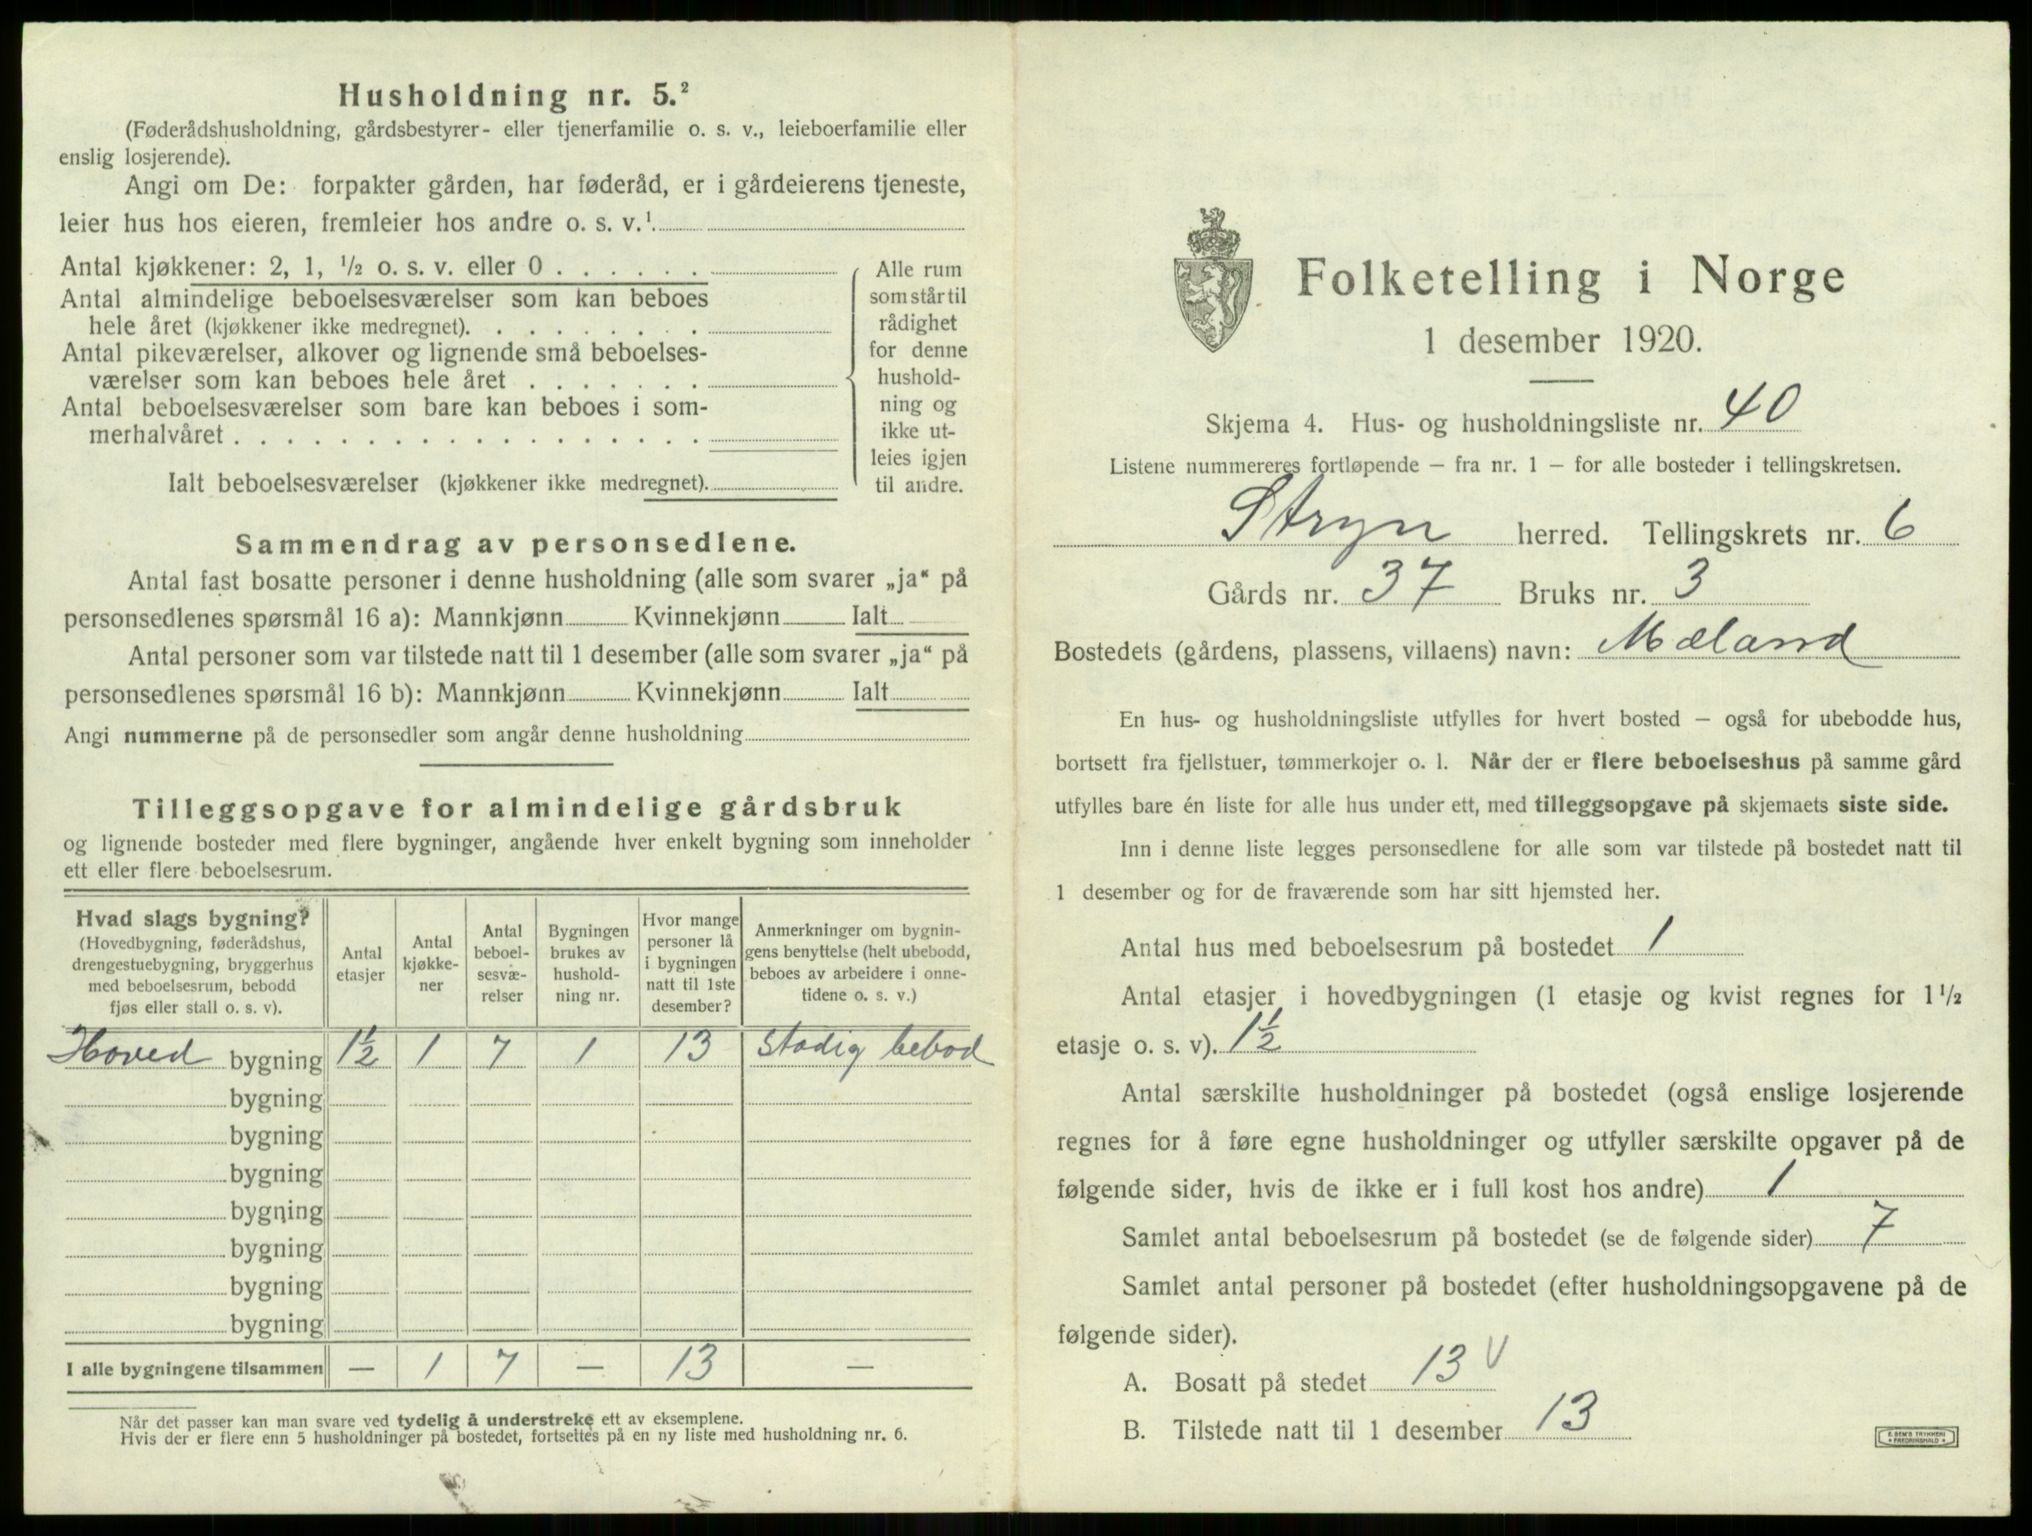 Husholdning nr. 5.²
(Føderådshusholdning, gårdsbestyrer- eller tjenerfamilie o. s. v., leieboerfamilie eller
enslig losjerende).
Angi om De: forpakter gården, har føderåd, er i gårdeierens tjeneste,
leier hus hos eieren, fremleier hos andre o. s. v.¹
Antal kjøkkener: 2, 1, ½ o. s. v. eller 0 . . . . . .
Antal almindelige beboelsesværelser som kan beboes
hele året (kjøkkener ikke medregnet). . . . . . . . .
Antal pikeværelser, alkover og lignende små beboelses-
værelser som kan beboes hele året . . . . . . .
Antal beboelsesværelser som bare kan beboes i som-
merhalvåret . . . . . . . . . . . . . . . . . .
Ialt beboelsesværelser (kjøkkener ikke medregnet).
Alle rum
som står til
rådighet
for denne
hushold-
ning og
ikke ut-
leies igjen
til andre.
Sammendrag av personsedlene.
Antal fast bosatte personer i denne husholdning (alle som svarer „ja“ på
personsedlenes spørsmål 16 a): Mannkjønn Kvinnekjønn Ialt
Antal personer som var tilstede natt til 1 desember (alle som svarer „ja“ på
personsedlenes spørsmål 16 b): Mannkjønn Kvinnekjønn Ialt
Angi nummerne på de personsedler som angår denne husholdning
Tilleggsopgave for almindelige gårdsbruk
og lignende bosteder med flere bygninger, angående hver enkelt bygning som inneholder
ett eller flere beboelsesrum.
Hvad slags bygning?
(Hovedbygning, føderådshus,
drengestuebygning, bryggerhus
med beboelsesrum, bebodd
fjøs eller stall o. s. v).
Antal
etasjer
Antal
kjøkke-
ner
Antal
beboel-
sesvæ-
relser
Bygningen
brukes av
hushold-
ning nr.
Hvor mange
personer lå
i bygningen
natt til 1ste
desember?
Anmerkninger om bygnin-
gens benyttelse (helt ubebodd,
beboes av arbeidere i onne-
tidene o. s. v.)
Hoved bygning 1½ 1 7 1 13 Stadig bebod
bygning
bygning
bygning
bygning
bygning
bygning
bygning
I alle bygningene tilsammen — 1 7 — 13 —
Når det passer kan man svare ved tydelig å understreke ett av eksemplene.
Hvis der er flere enn 5 husholdninger på bostedet, fortsettes på en ny liste med husholdning nr. 6.
Folketelling i Norge
1 desember 1920.
Skjema 4. Hus- og husholdningsliste nr. 40
Listene nummereres fortløpende – fra nr. 1 – for alle bosteder i tellingskretsen.
Stryn herred. Tellingskrets nr. 6
Gårds nr. 37 Bruks nr. 3
Bostedets (gårdens, plassens, villaens) navn: Mæland
En hus- og husholdningsliste utfylles for hvert bosted – også for ubebodde hus,
bortsett fra fjellstuer, tømmerkojer o. l. Når der er flere beboelseshus på samme gård
utfylles bare én liste for alle hus under ett, med tilleggsopgave på skjemaets siste side.
Inn i denne liste legges personsedlene for alle som var tilstede på bostedet natt til
1 desember og for de fraværende som har sitt hjemsted her.
Antal hus med beboelsesrum på bostedet 1
Antal etasjer i hovedbygningen (1 etasje og kvist regnes for 1½
etasje o. s. v). 1½
Antal særskilte husholdninger på bostedet (også enslige losjerende
regnes for å føre egne husholdninger og utfyller særskilte opgaver på de
følgende sider, hvis de ikke er i full kost hos andre) 1
Samlet antal beboelsesrum på bostedet (se de følgende sider) 7
Samlet antal personer på bostedet (efter husholdningsopgavene på de
følgende sider).
A. Bosatt på stedet 13 V
B. Tilstede natt til 1 desember 13
E. SEM'S TRYKKERI
FREDRIKSHALD